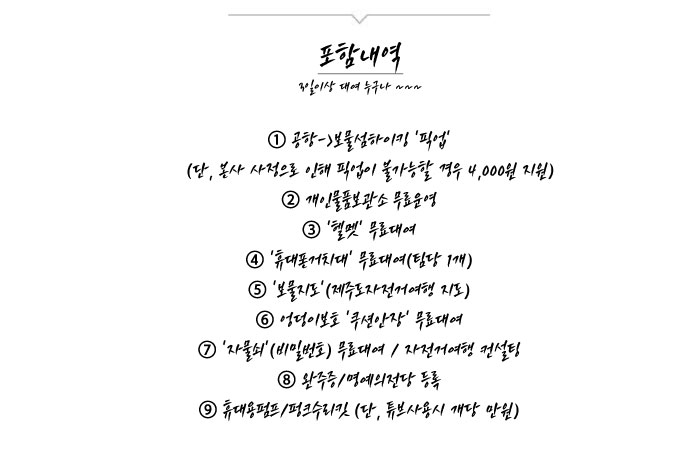 포함내역
3일이상 대여 누구나 ~~~
① 공항->보물섬하이킹 '픽업'
(단, 본사 사정으로 인해 픽업이 불가능할 경우 4,000원 지원)
② 개인물품보관소 무료운영
③ '헬멧' 무료대여
④ '휴대폰거치대' 무료대여(팀당 1개)
⑤ '보물지도'(제주도자전거여행 지도)
⑥ 엉덩이보호 '쿠션안장' 무료대여
⑦ '자물쇠'(비밀번호) 무료대여 / 자전거여행 컨설팅
⑧ 완주증/명예의전당 등록
⑨ 휴대용펌프/펑크수리킷 (단, 튜브사용시 개당 만원)